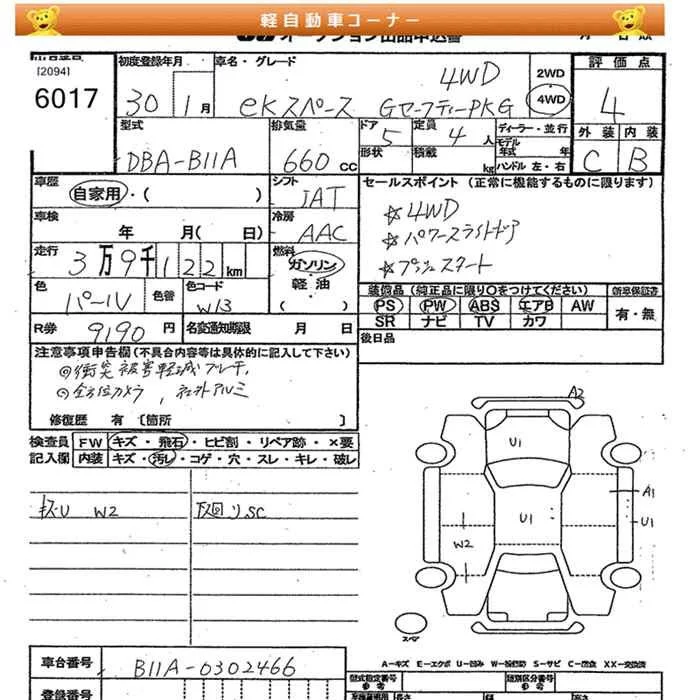 軽自動車コーナー
オークション出品申込書
[2094]
6017
初度登録年月
30 1月
車名・グレード
4WD
eKスペース GセーフティーPKG
2WD
4WD
評価点
4
外装 内装
C B
型式
DBA-B11A
排気量
660 CC
ドア
5
形状
定員
4 人
積載
kg
ディーラー・並行
モデル年式 年
ハンドル 左・右
車歴
自家用・( )
シフト
IAT
セールスポイント (正常に機能するものに限ります)
☆4WD
☆パワースライドドア
☆プッシュスタート
車検
年 月( 日)
冷房
AAC
走行
3万9千122km
燃料
ガソリン
軽油
( )
色
パールV
色替
色コード
W13
装備品 (純正品に限り○をつけてください)
新車保証書
PS PW ABS エアB AW
SR ナビ TV カワ
有・無
R券
9190円
名変通知期限 月 日
後日品
注意事項申告欄(不具合内容等は具体的に記入して下さい)
◎衝突被害軽減ブレーキ,
◎全方位カメラ, 社外アルミ
修復歴 有 〔箇所 〕
検査員
記入欄
FW キズ・飛石・ヒビ割・リペア跡・×要
内装 キズ・汚レ・コゲ・穴・スレ・キレ・破レ
キズU W2
下廻りSC
A2
U1
A1
U1
U1
W2
スペア
A−キズ E−エクボ U−凹み W−補修跡 S−サビ C−腐食 XX−交換済
車台番号
B11A-0302466
登録番号
型式指定番号
参考
類別区分番号
参考
長さ
幅
高さ